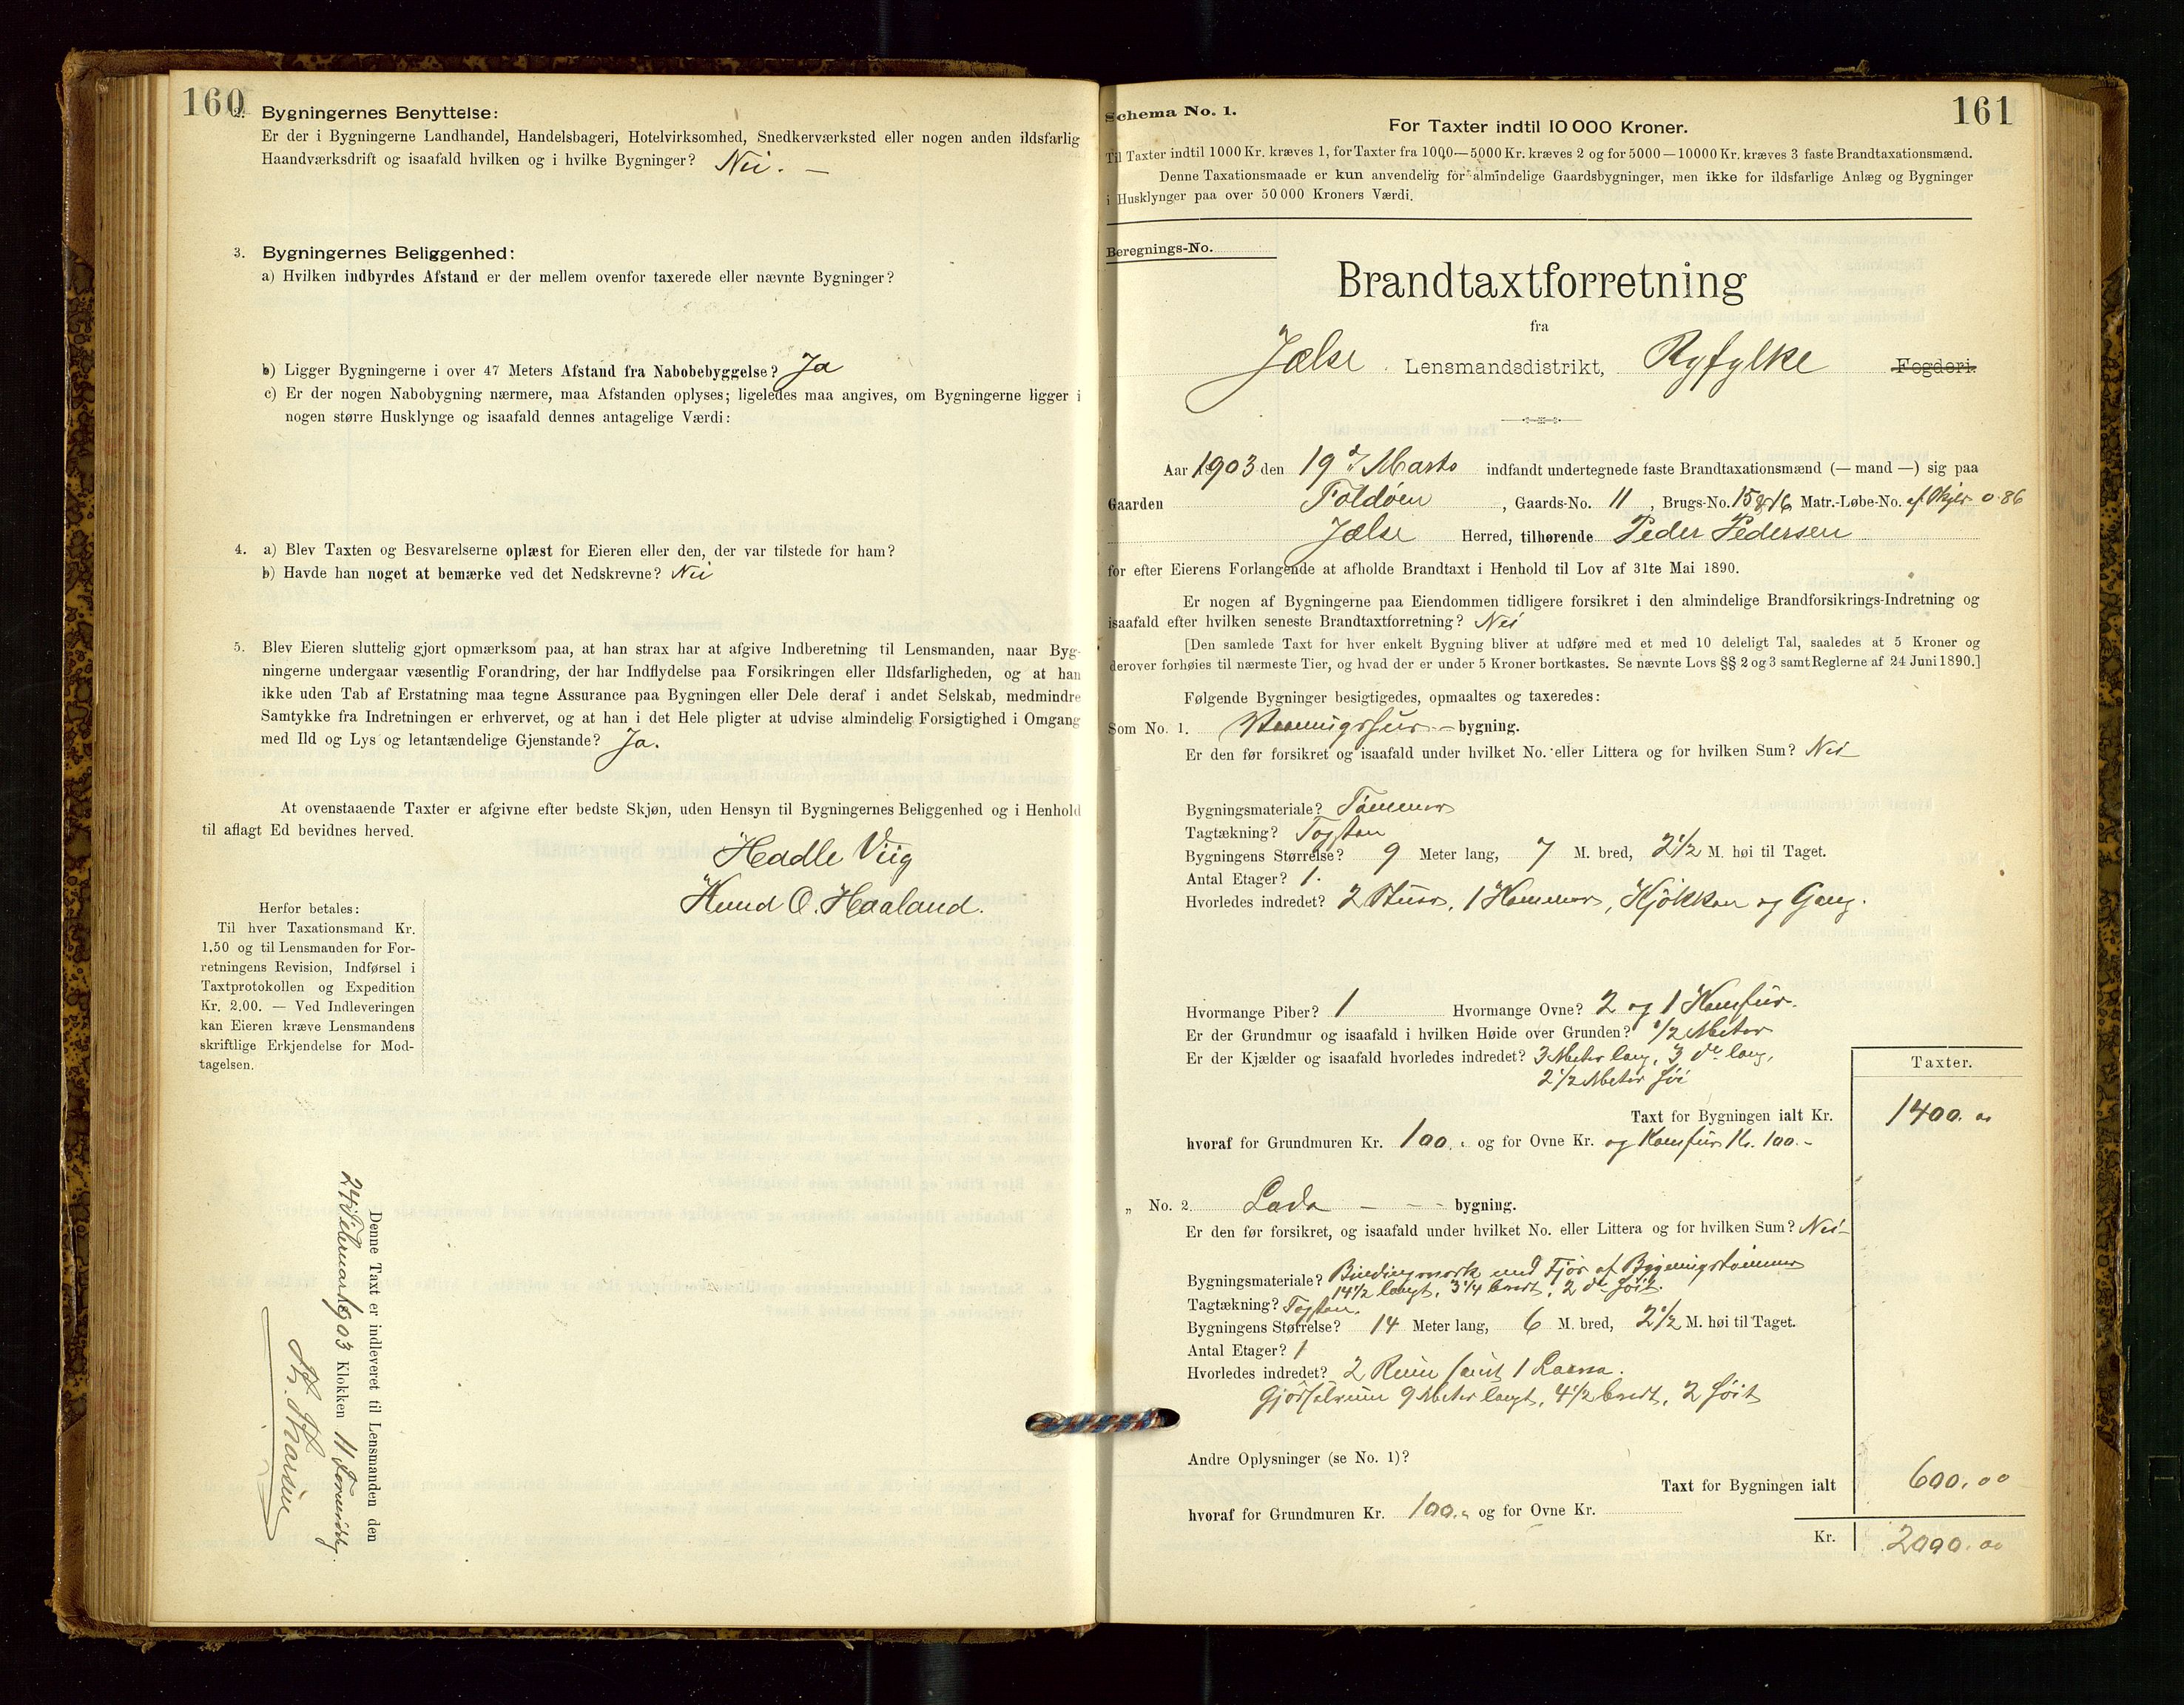 160
2. Bygningernes Benyttelse:
Er der i Bygningerne Landhandel, Handelsbageri, Hotelvirksomhed, Snedkerværksted eller nogen anden ildsfarlig
Haandværksdrift og isaafald hvilken og i hvilke Bygninger? Nei. —
3. Bygningernes Beliggenhed:
a) Hvilken indbyrdes Afstand er der mellem ovenfor taxerede eller nævnte Bygninger?
b) Ligger Bygningerne i over 47 Meters Afstand fra Nabobebyggelse? Ja
c) Er der nogen Nabobygning nærmere, maa Afstanden oplyses; ligeledes maa angives, om Bygningerne ligger i
nogen større Husklynge og isaafald dennes antagelige Værdi:
4. a) Blev Taxten og Besvarelserne oplæst for Eieren eller den, der var tilstede for ham?
b) Havde han noget at bemærke ved det Nedskrevne? Nei
5. Blev Eieren sluttelig gjort opmærksom paa, at han strax har at afgive Indberetning til Lensmanden, naar Byg-
ningerne undergaar væsentlig Forandring, der har Indflydelse paa Forsikringen eller Ildsfarligheden, og at han
ikke uden Tab af Erstatning maa tegne Assurance paa Bygningen eller Dele deraf i andet Selskab, medmindre
Samtykke fra Indretningen er erhvervet, og at han i det Hele pligter at udvise almindelig Forsigtighed i Omgang
med Ild og Lys og letantændelige Gjenstande? Ja.
At ovenstaaende Taxter er afgivne efter bedste Skjøn, uden Hensyn til Bygningernes Beliggenhed og i Henhold
til aflagt Ed bevidnes herved.
Hadle Viig
Knud O. Haaland.
Herfor betales:
Til hver Taxationsmand Kr.
1.50 og til Lensmanden for For-
retningens Revision, Indførsel i
Taxtprotokollen og Expedition
Kr. 2.00. — Ved Indleveringen
kan Eieren kræve Lensmandens
skriftlige Erkjendelse for Mod-
tagelsen.
Denne Taxt er indleveret til Lensmanden den
24 1903 Klokken 11
161
Schema No. 1.
For Taxter indtil 10 000 Kroner.
Til Taxter indtil 1000 Kr. kræves 1, for Taxter fra 1000—5000 Kr. kræves 2 og for 5000—10000 Kr. kræves 3 faste Brandtaxationsmænd.
Denne Taxationsmaade er kun anvendelig for almindelige Gaardsbygninger, men ikke for ildsfarlige Anlæg og Bygninger
i Husklynger paa over 50 000 Kroners Værdi.
Beregnings-No.
Brandtaxtforretning
fra
Jælse Lensmandsdistrikt, Ryfylke Fogderi.
Aar 1903 den 19de Marts indfandt undertegnede faste Brandtaxationsmænd (— mand —) sig paa
Gaarden Foldøen, Gaards-No. 11, Brugs-No. 15 & 16 Matr.-Løbe-No. af Skyld 0.86
Jælse Herred, tilhørende Peder Pedersen
for efter Eierens Forlangende at afholde Brandtaxt i Henhold til Lov af 31te Mai 1890.
Er nogen af Bygningerne paa Eiendommen tidligere forsikret i den almindelige Brandforsikrings-Indretning og
isaafald efter hvilken seneste Brandtaxtforretning? Nei
[Den samlede Taxt for hver enkelt Bygning bliver at udføre med et med 10 deleligt Tal, saaledes at 5 Kroner og
derover forhøies til nærmeste Tier, og hvad der er under 5 Kroner bortkastes. Se nævnte Lovs §§ 2 og 3 samt Reglerne af 24 Juni 1890.]
Følgende Bygninger besigtigedes, opmaaltes og taxeredes:
Som No. 1. Vaaningshus — bygning.
Er den før forsikret og isaafald under hvilket No. eller Littera og for hvilken Sum? Nei
Bygningsmateriale? Tømmer
Tagtækning? Tagsten
Bygningens Størrelse? 9 Meter lang, 7 M. bred, 2 1/2 M. høi til Taget.
Antal Etager? 1.
Hvorledes indredet? 2 Stuer, 1 Kammer, Kjøkken og Gang.
Hvormange Piber? 1 Hvormange Ovne? 2 og 1 Komfur.
Er der Grundmur og isaafald i hvilken Høide over Grunden? 1/2 Meter
Er der Kjælder og isaafald hvorledes indredet? 3 Meter lang, 3 do lang,
2 1/2 Meter høi
Taxter.
Taxt for Bygningen ialt Kr. 1400. 00
hvoraf for Grundmuren Kr. 100. „ og for Ovne Kr. og Komfur Kr. 100. -
„ No. 2. Lada — - - bygning.
Er den før forsikret, og isaafald under hvilket No. eller Littera og for hvilken Sum? Nei -
Bygningsmateriale? Bindingsverk med Fjøs af Bygningstømmer
14 1/2 langt, 3 1/4 bredt, 2 do høit.
Tagtækning? Tagsten.
Bygningens Størrelse? 14 Meter lang, 6 M. bred, 2 1/2 M. høi til Taget.
Antal Etager? 1
Hvorledes indredet? 2 Rum samt 1
9 Meter langt, 4 1/2 bredt, 2 høit
Andre Oplysninger (se No. 1)?
Taxt for Bygningen ialt 600. 00
hvoraf for Grundmuren Kr. 100. „ og for Ovne Kr.
Kr. 2000. 00